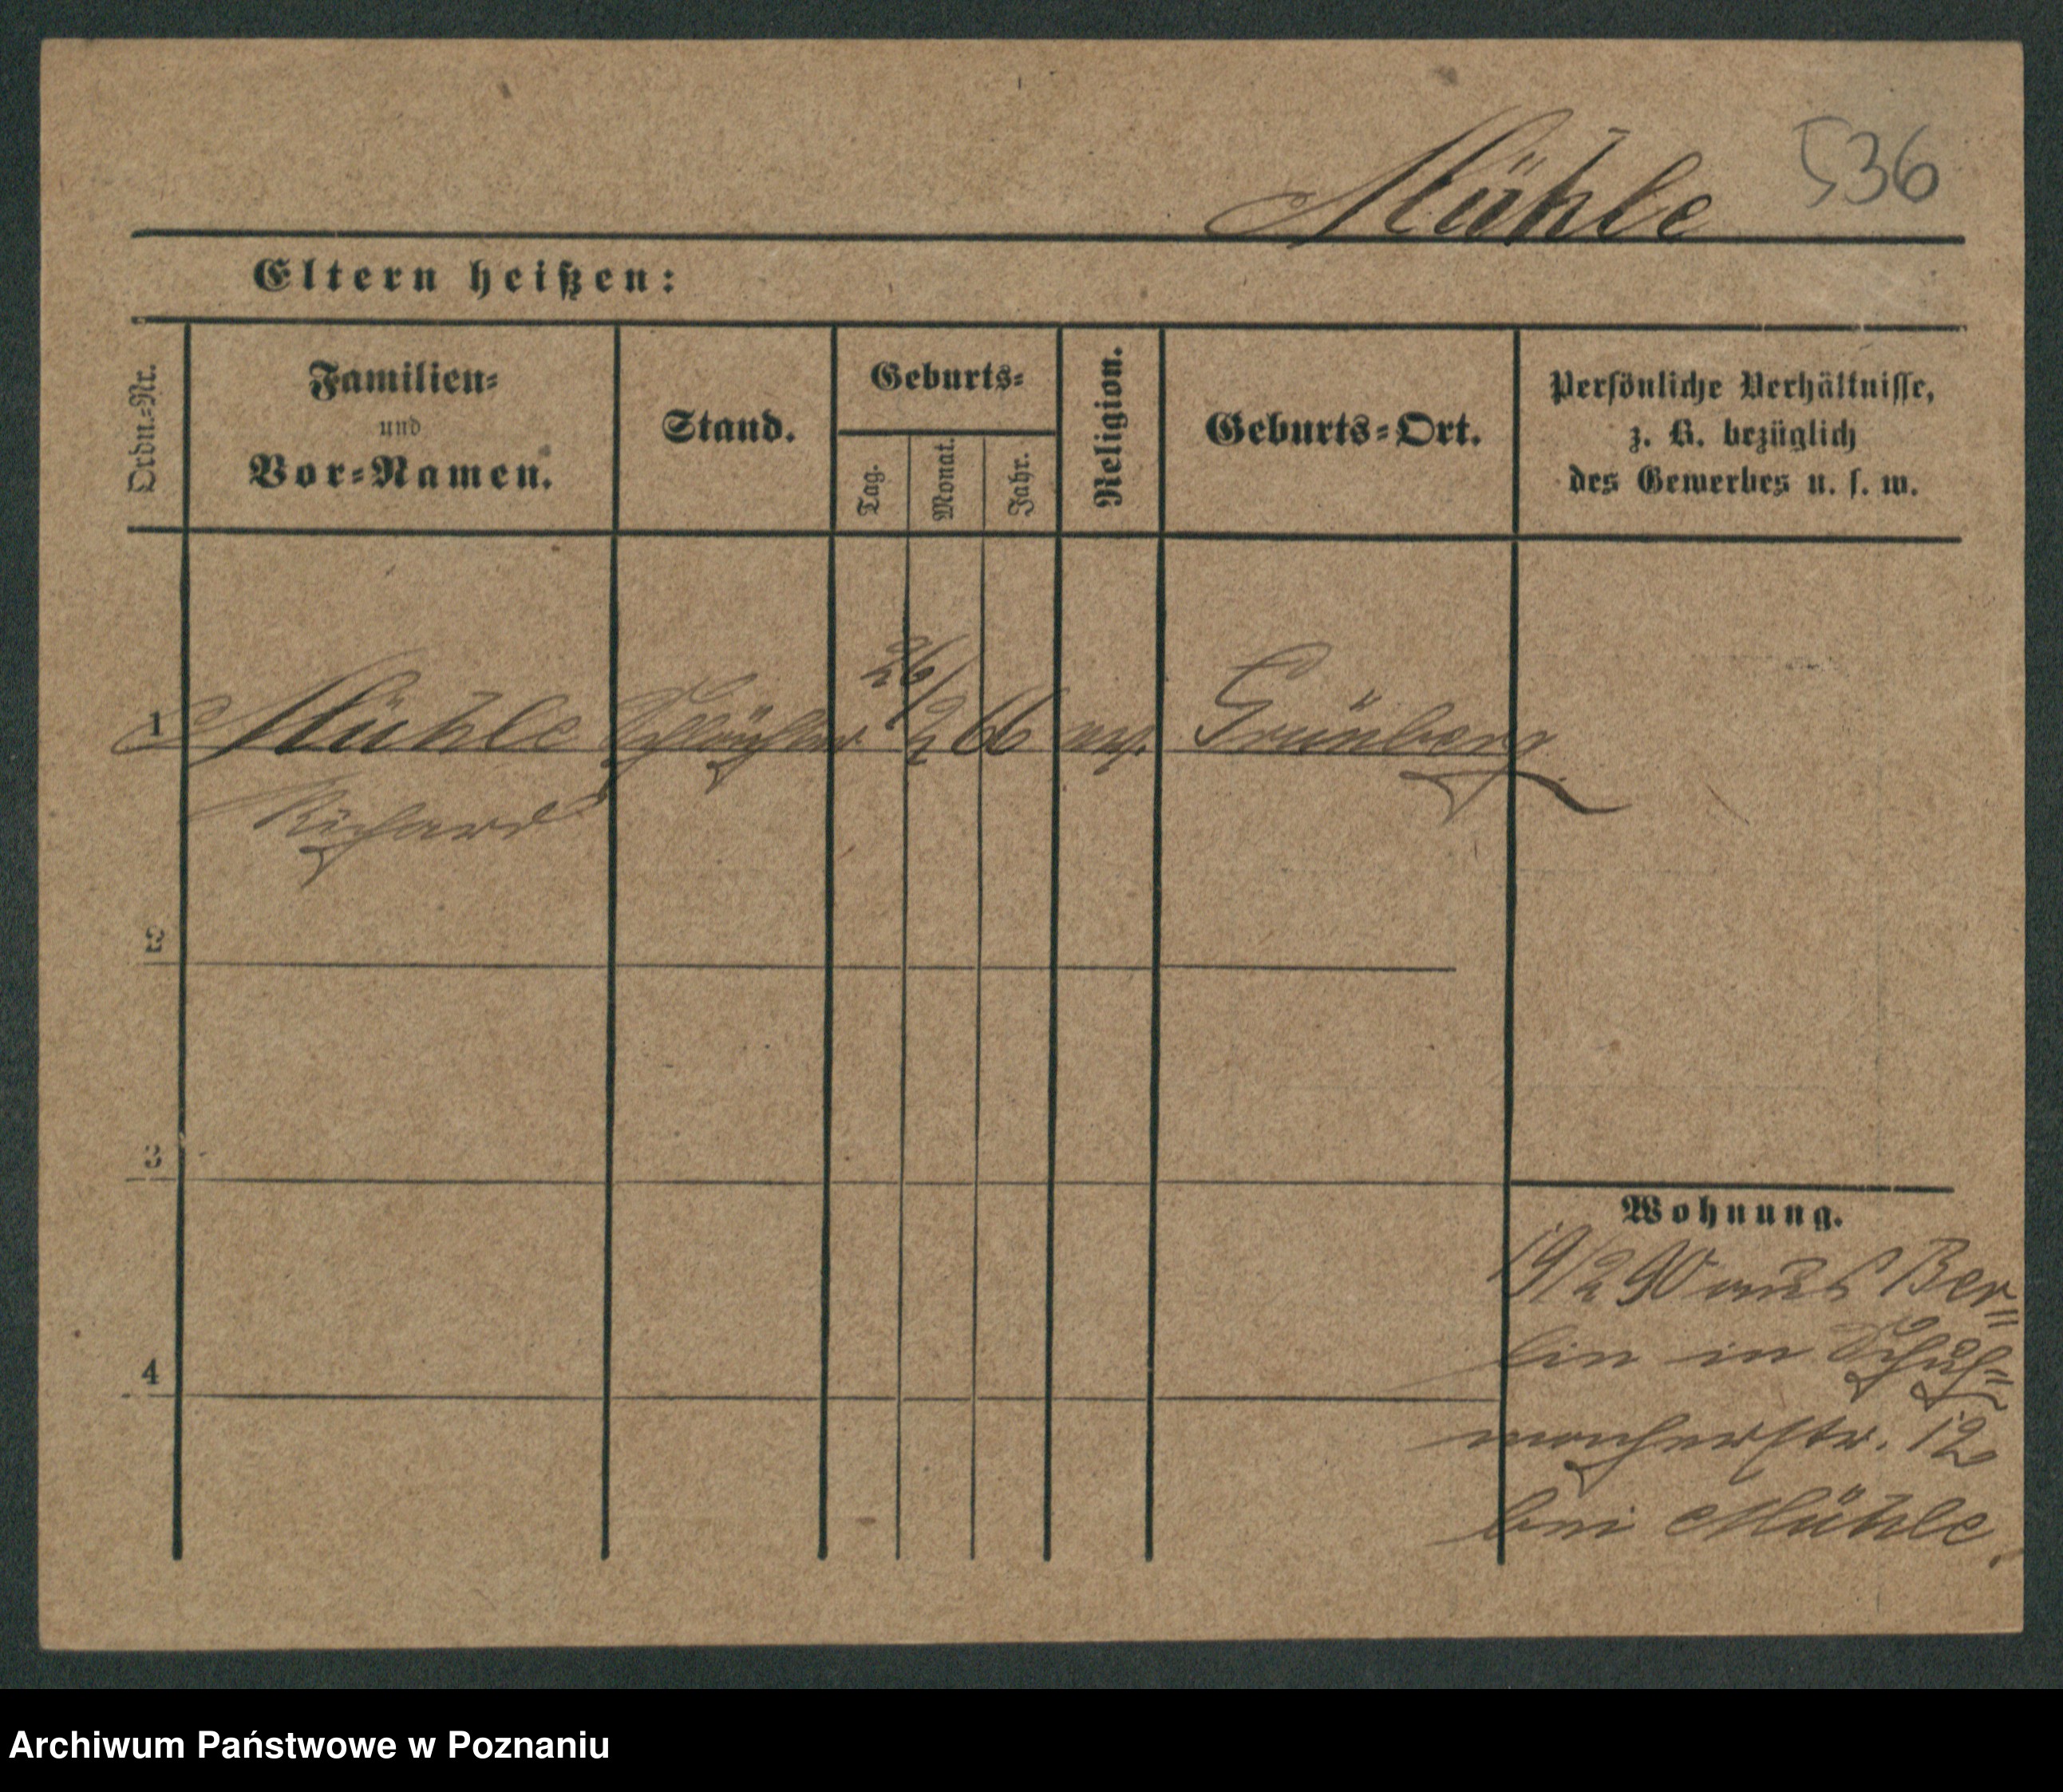 536
Mühle
Eltern heißen:
Ordn.-Nr.
Familien-
und
Vor-Namen.
Stand.
Geburts-
Tag.
Monat.
Jahr.
Religion.
Geburts-Ort.
Persönliche Verhältnisse,
z. B. bezüglich
des Gewerbes u. s. w.
1 Mühle 26/2 66 Grünberg
Richard
2
3
4
Wohnung.
19/2 90 aus Ber=
lin in Schuh=
macherstr. 12
bei Mühle.
Archiwum Państwowe w Poznaniu